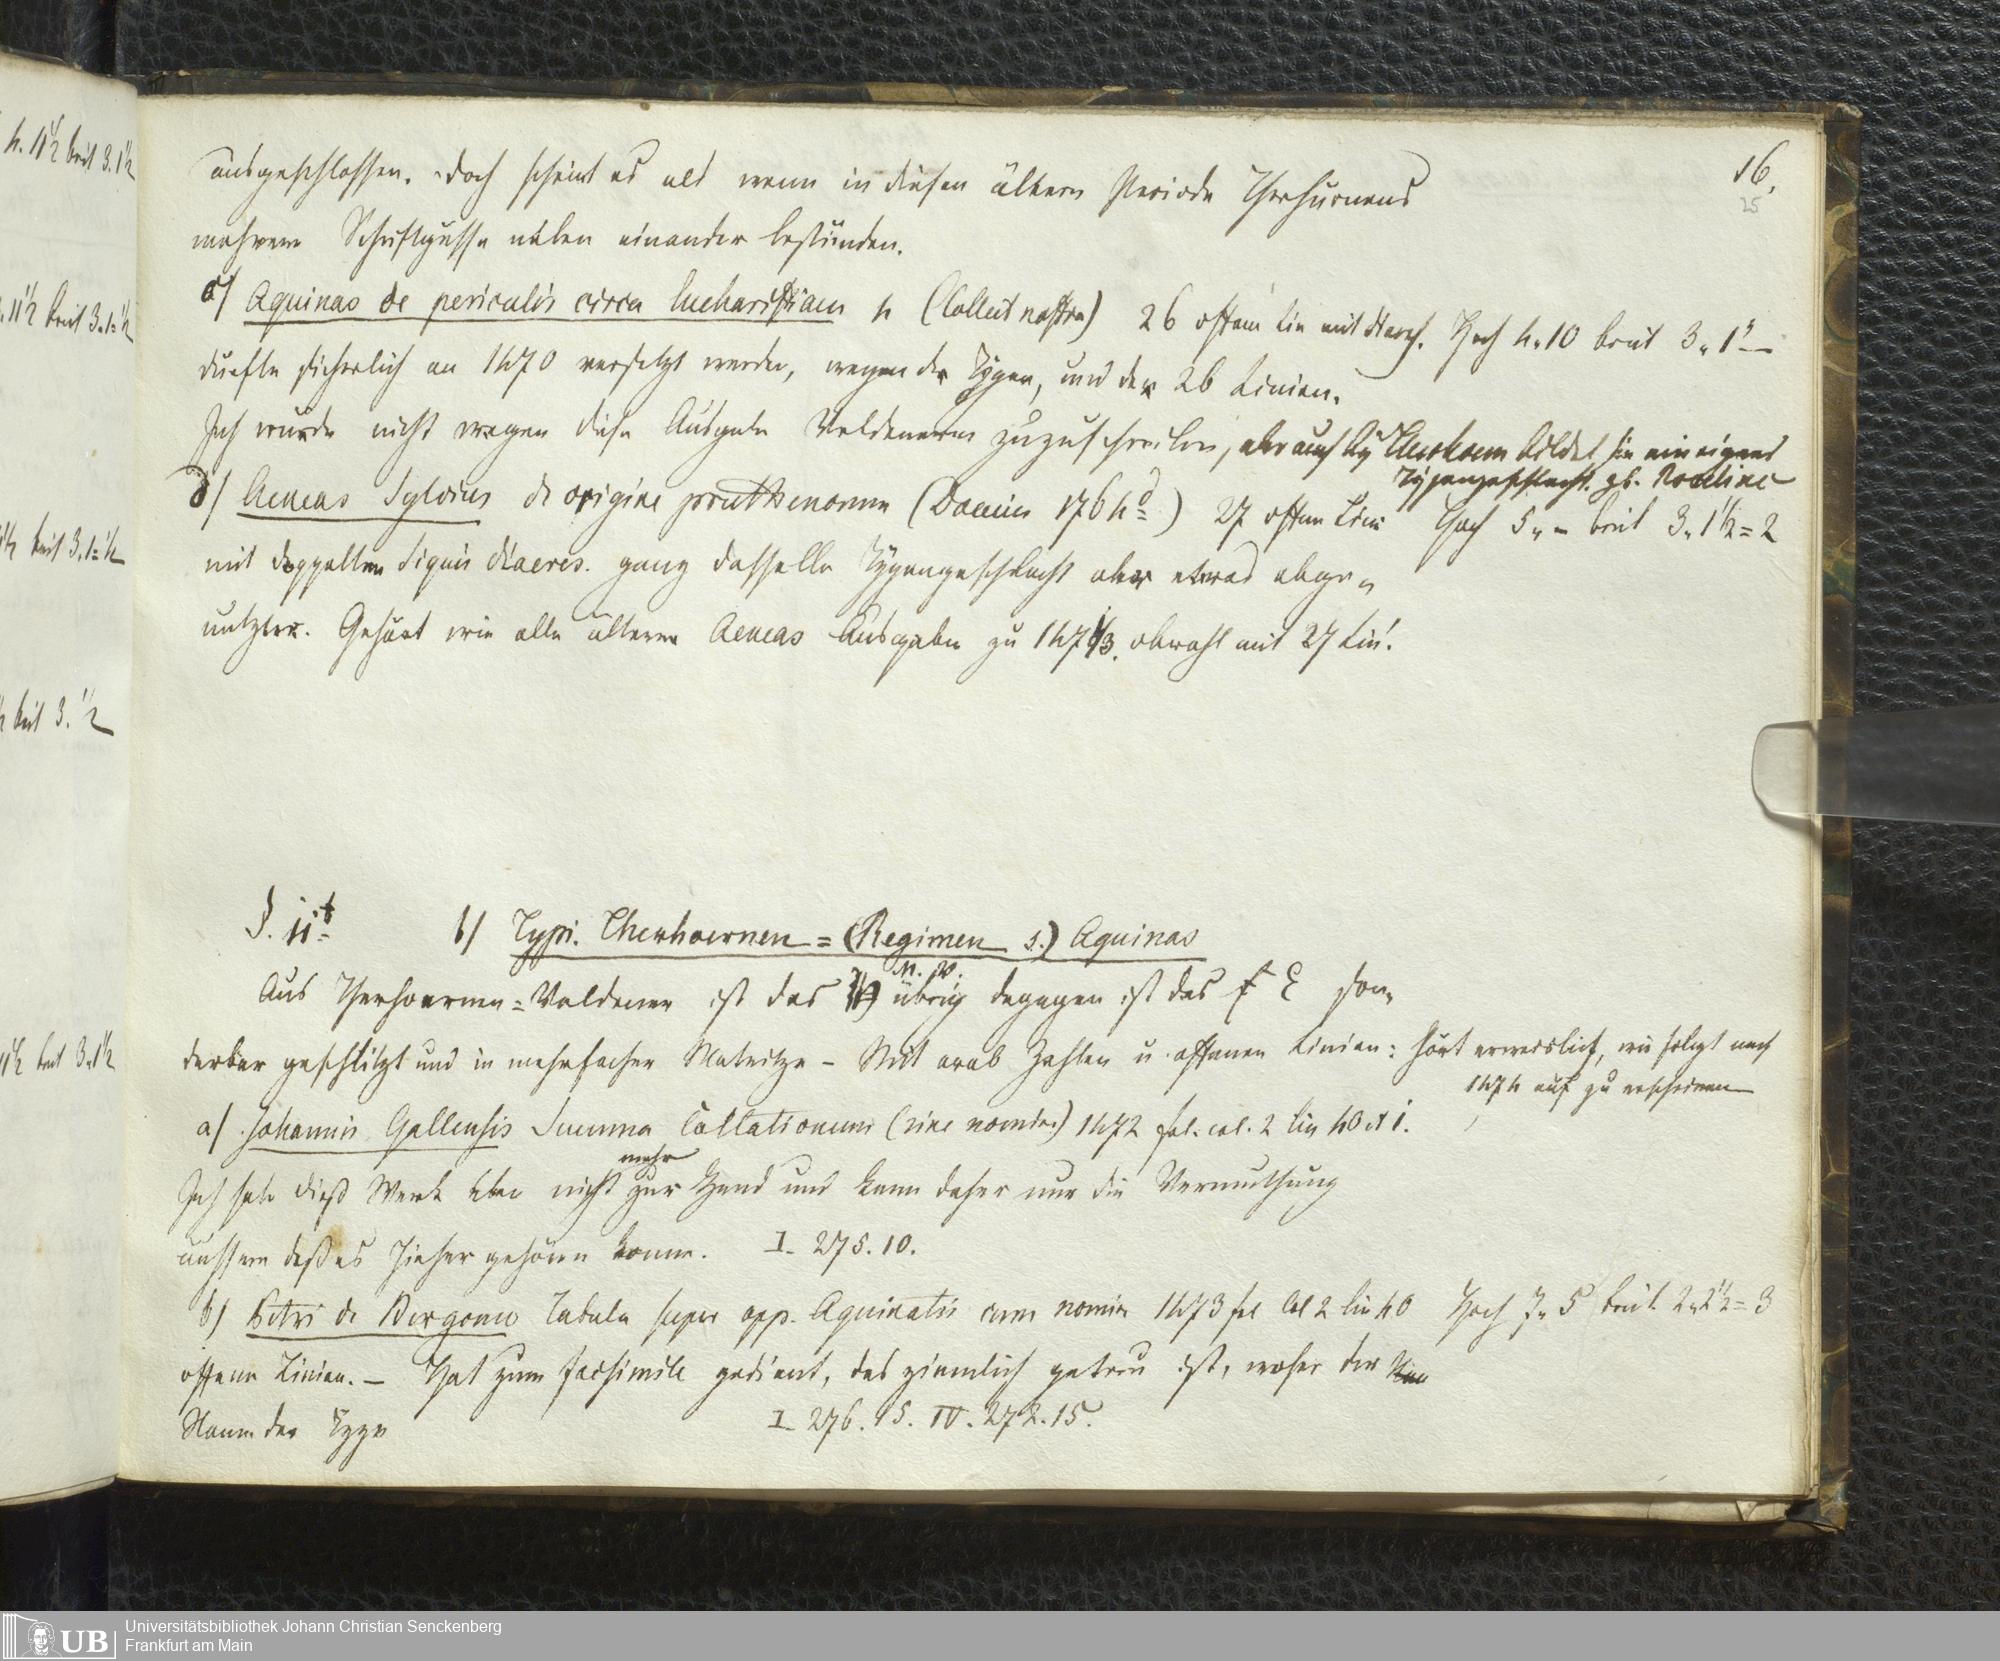 16.
25
ausgeschlossen. Doch scheint es als wenn in diesen ältern Periode Therhurnens
mehrere Schriftgüsse neben einander bestünden.
c/ Aquinas de periculis circa Eucharistiam 4 (Collect nostra) 26 offene Lin mit Hoch 4. 10 breit 3. 1
durfte sicherlich an 1470 versetzt werden, wegen der Typen, und der 26 Linien.
Ich wurde nicht wegen diese Ausgabe Veldenern zuzuschreiben, aber auch by Therhoern bildet sie ein eignes
Typengeschlecht.
d/ Aeneas Sylvius de origine pruthenorum (Daenin 1764) 27 offene Linie Hoch 5. - breit 3. 1½ = 2
mit doppelten Signis diaeres. ganz dasselbe Typengeschlecht aber etwas abge=
nutzter. Gehört wie alle ältere Aeneas Ausgaben zu 1471/3. obwohl mit 27 Lin.
§. 11t b/ Typi. Therhoernen = (Regimen s.) Aquinas
Aus Therhoernen = Veldener ist das M. N. übrig dagegen ist das f E son=
derbar geschlitzt und in mehrfacher Matritze - Mit arab Zahlen u. offenen Linien: hört erweislich, wie folgt nach
1474 auf zu erscheinen
a/ Johannis Gallensis Summa Collationum (sine nomine) 1472 fol. col. 2 lin 40 et i.
mehr
Ich habe dieß Werk eben nicht zur Hand und kann daher nur die Vermuthung
äussern daß es hieher gehören könne. I. 275. 10.
b) Petri de Bergomo Tabula super opp. Aquinatis cum nomine 1473 fol Col 2 lin 40 Hoch 7. 5 breit 2. 2½ = 3
offene Linien. - Hat zum facsimile gedient, das ziemlich getreu ist, woher der
Name der Type I. 276. 15. IV. 272. 15.
breit 3. 1½
breit 3. 1 = ½
breit 3. 1 = ½
breit 3. ½
breit 3. 1½
UB
Universitätsbibliothek Johann Christian Senckenberg
Frankfurt am Main